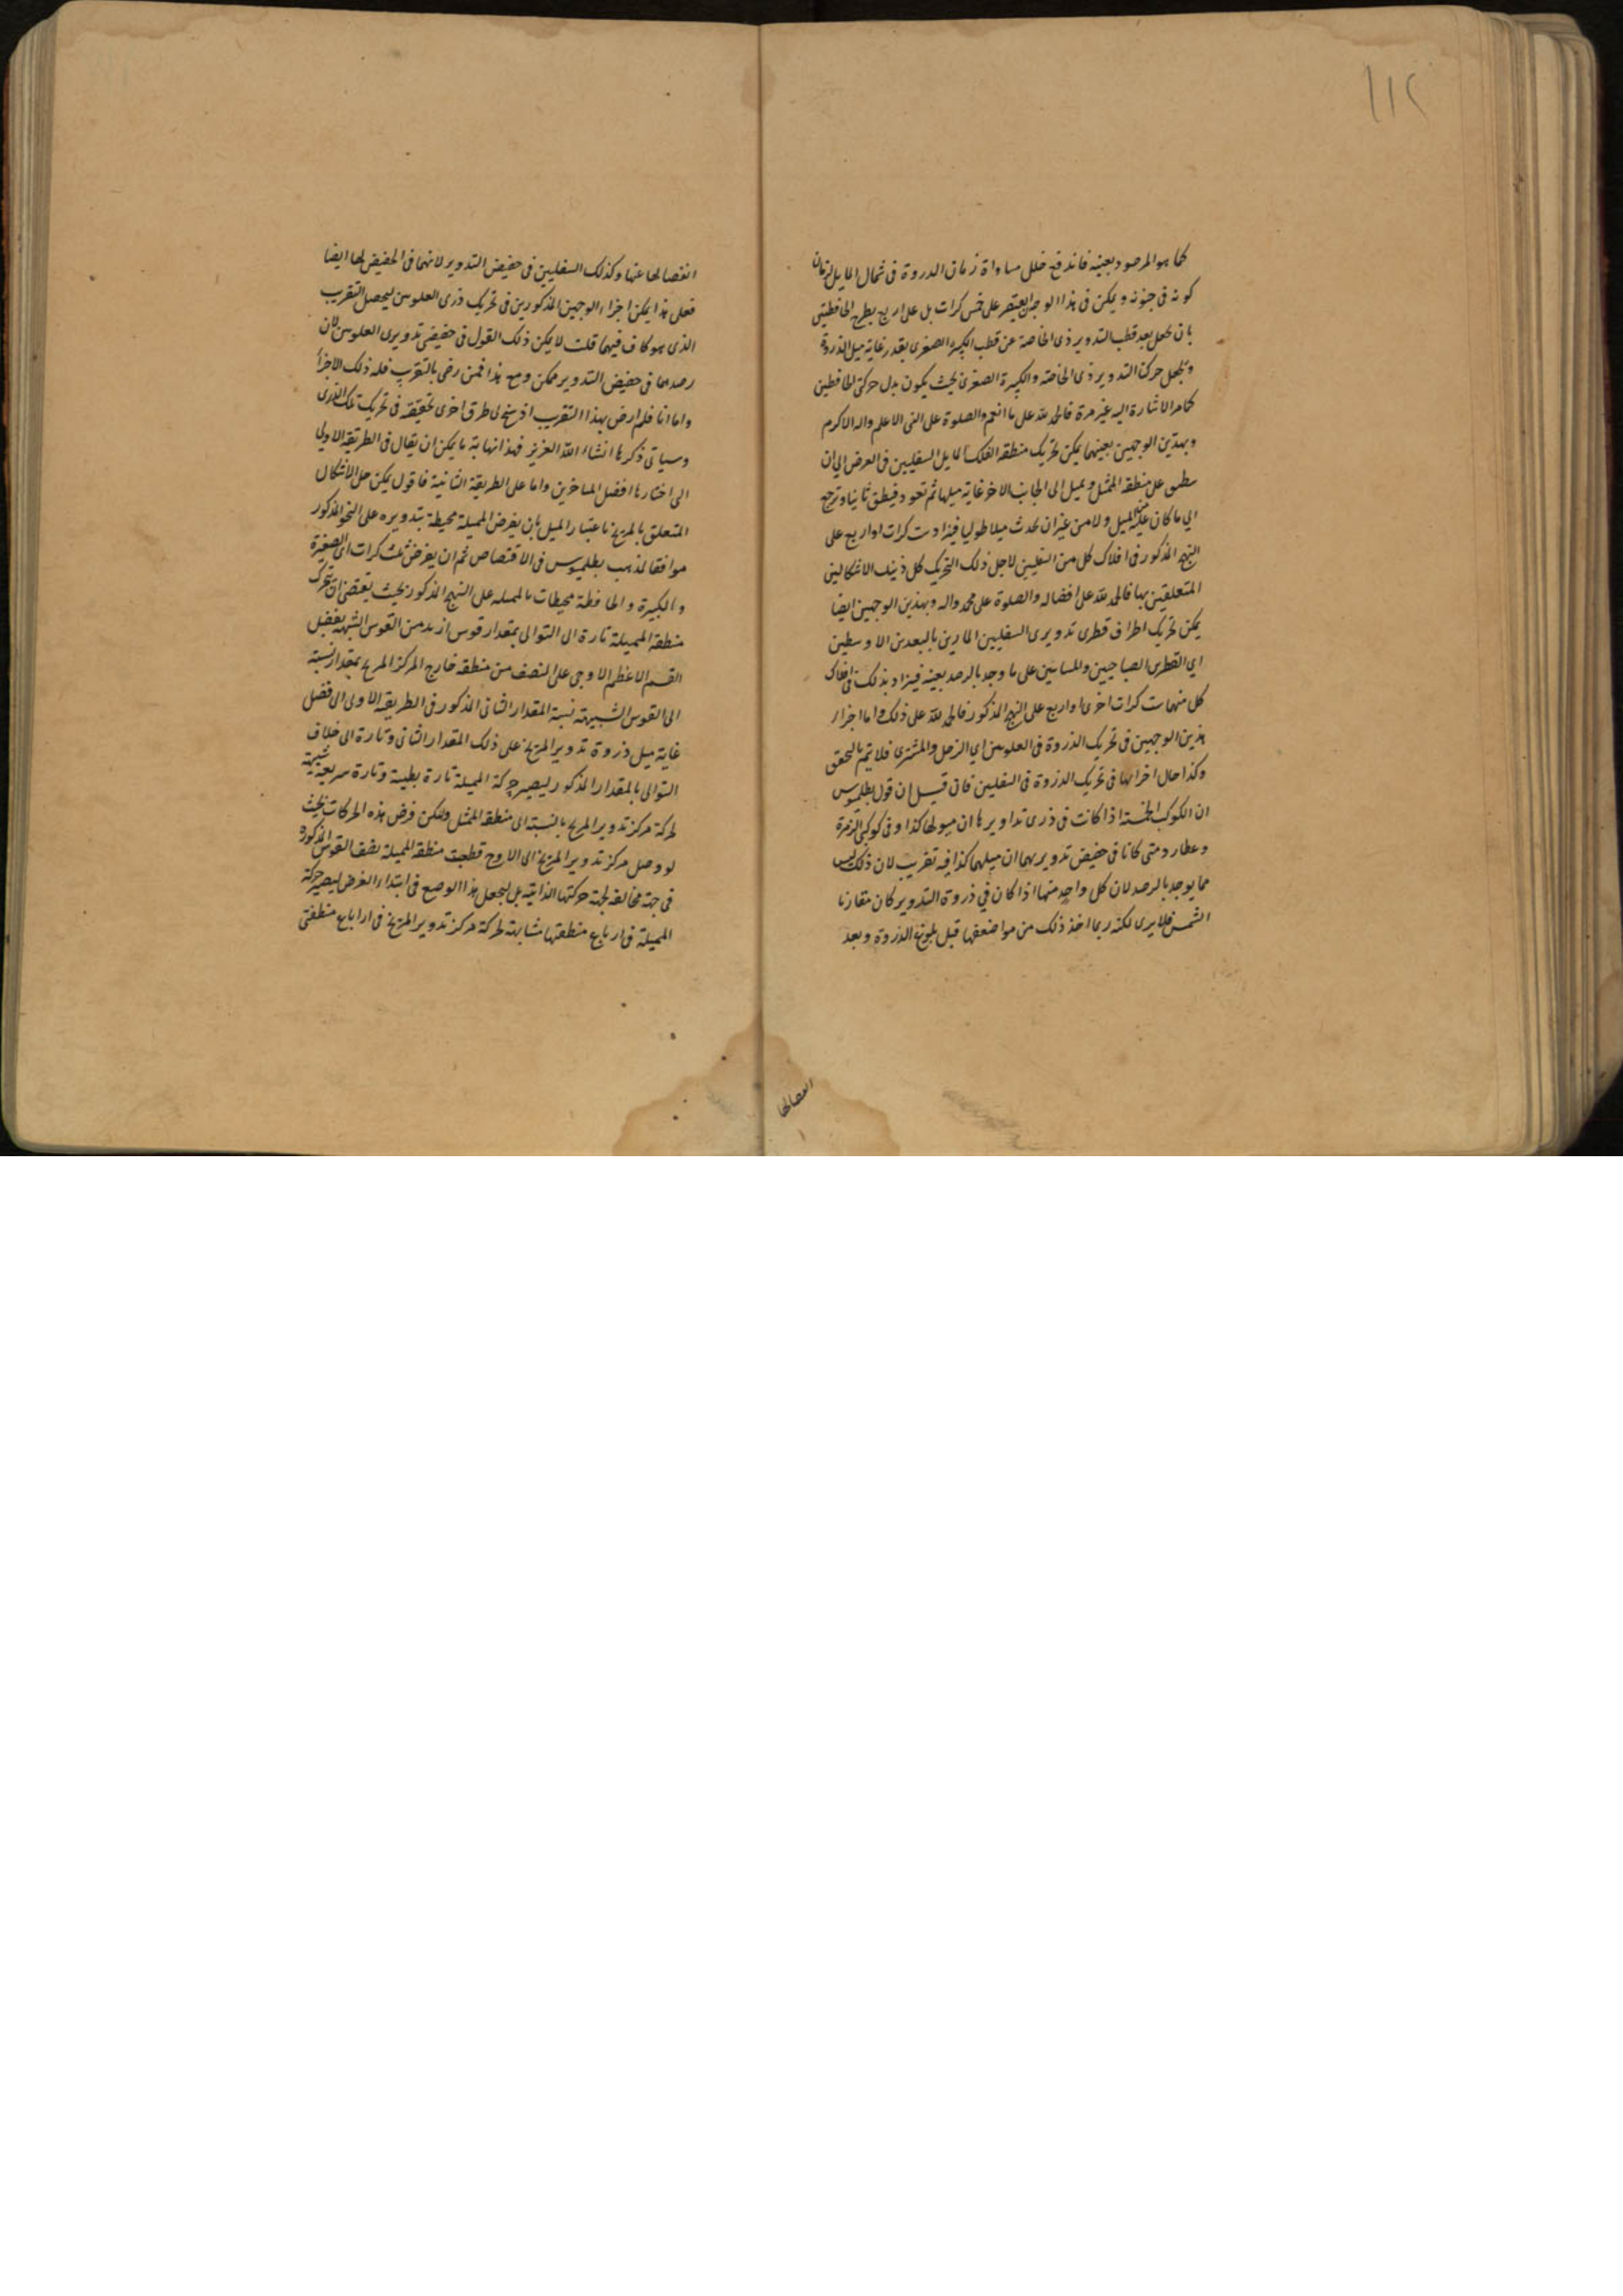 ١١٢
كما هو المرصود بعينه فاندفع خلل مساواة زمان الذروة فى شمال المايل لزمان
كونه فى جنوبه ويمكن فى هذا الوجه ان يقتصر على خمس كرات بل على اربع بطرح الحافظتين
بان نجعل بعد قطب التدوير ذى الخاصة عن قطب الكبيرة الصغرى بقدر غاية ميل الذروة
ونجعل حركة التدوير ذى الخاصة والكبيرة الصغرى بحيث يكون بدل حركتى الحافظتين
كما مر الاشارة اليه غير مرة فالحمد لله على ما انعم والصلوة على النبى الاعلم واله الاكرم
وبهذين الوجهين بعينهما يمكن تحريك منطقة الفلك المايل للسفليين فى العرض الى ان
ينطبق على منطقة الممثل ويميل الى الجانب الاخر غاية ميلها ثم تعود فينطبق ثانيا وترجع
الى ما كان عليه الميل ولا من غير ان يحدث ميلا طوليا فيزاد ست كرات او اربع على
النهج المذكور فى افلاك كل من السفليين لاجل ذلك التحريك كل ذينك الاشكالين
المتعلقين بها فالحمد لله على افضاله والصلوة على محمد واله وبهذين الوجهين ايضا
يمكن تحريك اطراف قطرى تدويرى السفليين المارين بالبعدين الاوسطين
اى القطرين الصباحيين والمسائيين على ما وجد بالرصد بعينه فيزاد بذلك فى افلاك
كل منهما ست كرات اخرى او اربع على النهج المذكور فالحمد لله على ذلك واما اجزاء
هذين الوجهين فى تحريك الذروة فى العلويين اى الزحل والمشترى فلا يتم بالتحقق
وكذا حال اجزائها فى تحريك الذروة فى السفليين فان قيل ان قول بطلميوس
ان الكوكب الخمسة اذا كانت فى ذرى تداويرها ان ميولها كذا وفى كوكبى الزهرة
وعطارد متى كانا فى حضيض تدويريهما ان ميلهما كذا فيه تقريب لان ذلك ليس
مما يوجد بالرصد لان كل واحد منها اذا كان فى ذروة التدوير كان مقارنا
الشمس فلا يرى لكنه ربما اخذ ذلك من مواضعها قبل بلوغه الذروة وبعد
انفصالها
انفصالها عنها وكذلك السفليين فى حضيض التدوير لانهما فى الحضيض لها ايضا
فعلى هذا يمكن اجزاء الوجهين المذكورين فى تحريك ذرى العلويين ليحصل التقريب
الذى هو كاف فيها قلت لا يمكن ذلك القول فى حضيضى تدويرى العلويين لان
رصدهما فى حضيض التدوير ممكن ومع هذا فمن رضى بالتقريب فله ذلك الاجزاء
واما انا فلم ارض بهذا التقريب اذ سنح لى طرق اخرى تحقيقية فى تحريك تلك الذرى
وسياتى ذكرها انشاء الله العزيز فهذا نهاية ما يمكن ان يقال فى الطريقة الاولى
التى اختارها افضل المتاخرين واما على الطريقة الثانية فاقول يمكن حل الاشكال
المتعلق بالمريخ باعتبار الميل بان يفرض المميلة محيطة بتدويره على النحو المذكور
موافقا لمذهب بطلميوس فى الاقتصاص ثم ان يفرض ثلث كرات اى الصغيرة
والكبيرة والحافظة محيطات بالمميلة على النهج المذكور بحيث يقتضى ان تتحرك
منطقة المميلة تارة الى التوالى بمقدار قوس ازيد من القوس الشبيهة بفضل
القسم الاعظم الاوجى على النصف من منطقة خارج المركز المريخ بمقدار نسبته
الى القوس الشبيهة نسبة المقدار الثانى المذكور فى الطريقة الاولى الى فضل
غاية ميل ذروة تدوير المريخ على ذلك المقدار الثانى وتارة الى خلاف
التوالى بالمقدار المذكور ليصير حركة المميلة تارة بطيئة وتارة سريعة شبيهة
لحركة مركز تدوير المريخ بالنسبة الى منطقة الممثل وليكن فرض هذه الحركات بحيث
لو وصل مركز تدوير المريخ الى الاوج قطعت منطقة المميلة نصف القوس المذكورة
فى جهة مخالفة لجهة حركتها الذاتية بل ليجعل هذا الوضع فى ابتداء الفرض ليصير حركة
المميلة فى ارباع منطقتها مشابهة لحركة مركز تدوير المريخ فى ارباع منطقتى